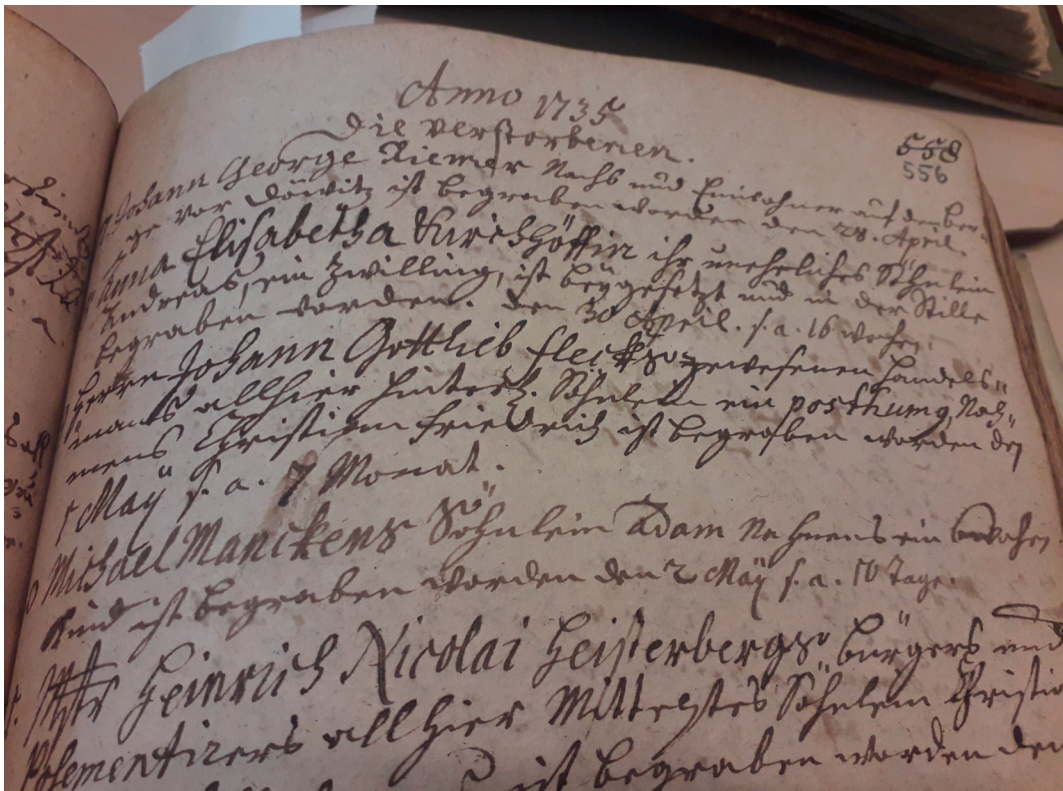 Anno 1735
Die verstorbenen.
558
556
Johann George Riemer Nachb und Einwohner auf dem Ber-
ge vor ist begraben worden den 28. April.
Anna Elisabetha ihr uneheliches Söhnlein
Andreas, ein Zwilling, ist beygesetzt und in der Stille
begraben worden. den 30 April. s. a. 16 wochen.
Herrn Johann Gottlieb gewesenen Handels-
manns allhier hinterl. Söhnlein ein posthumg, Nah-
mens Christian Friedrich ist begraben worden den
1 May s. a. 7 Monat.
Michael Manckens Söhnlein Adam Nahmens ein
Kind ist begraben worden den 2 May s. a. 10 Tage.
Mstr Heinrich Nicolai Heisterbergs bürgers und
Posementirers allhier Mittelstes Söhnlein Christia
ist begraben worden den